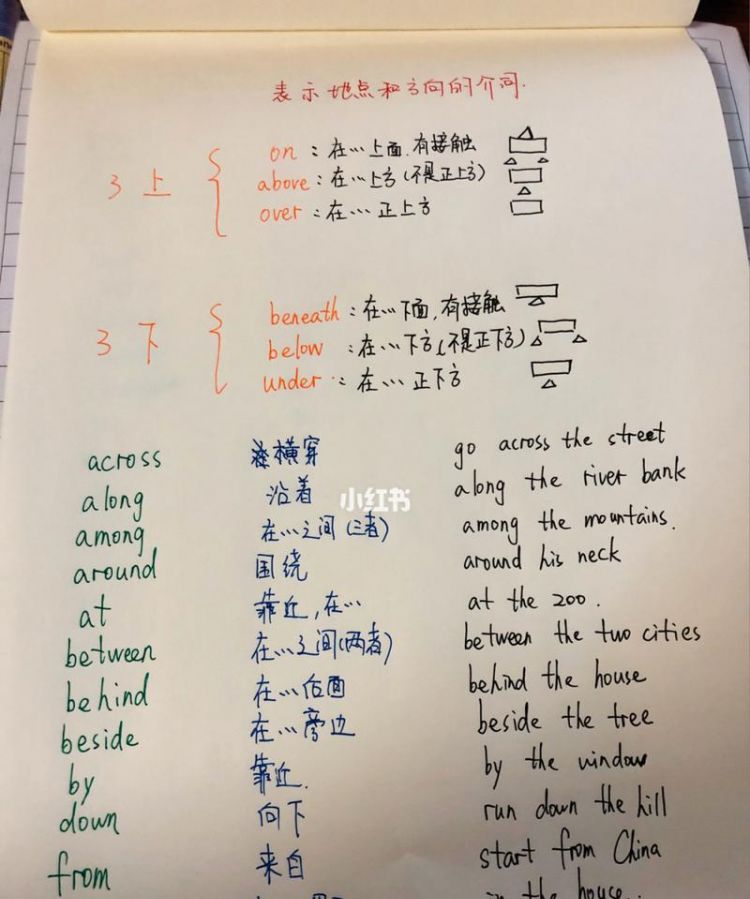 表示地点和方向的介词.
3上
on：在…上面,有接触
above：在…上方(不是正上方)
over：在…正上方
3下
beneath：在…下面,有接触
below：在…下方(不是正下方)
under：在…正下方
across 横穿 go across the street
along 沿着 along the river bank
小红书
among 在…之间(三者) among the mountains.
around 围绕 around his neck
at 靠近,在… at the zoo.
between 在…之间(两者) between the two cities
behind 在…后面 behind the house
beside 在…旁边 beside the tree
by 靠近. by the window
down 向下 run down the hill
from 来自 start from China
in the house.